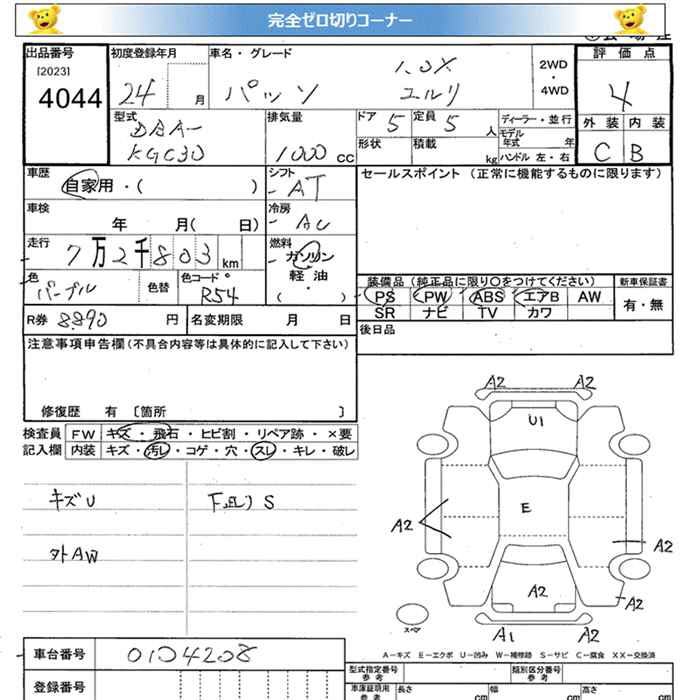 完全ゼロ切りコーナー
出品番号
[2023]
4044
初度登録年月
24 月
車名・グレード
パッソ
1.0X
2WD
・
4WD
評価点
4
外装 内装
C B
型式
DBA-
KGC30
排気量
1000 cc
ドア 5
定員 5 人
形状
積載 kg
ディーラー・並行
モデル
年式 年
ハンドル 左・右
車歴
自家用・( )
シフト
- AT
セールスポイント (正常に機能するものに限ります)
車検
年 月( 日)
冷房
- AC
走行
7万2千803 km
燃料
ガソリン
軽油
( ・ )
色
パープル
色替
色コード
R54
装備品 (純正品に限り○をつけてください)
新車保証書
PS PW ABS エアB AW
有・無
SR ナビ TV カワ
R券 8890 円
名変期限 月 日
後日品
注意事項申告欄(不具合内容等は具体的に記入して下さい)
修復歴 有 [箇所 ]
検査員
記入欄
FW キズ・飛石・ヒビ割・リペア跡・×要
内装 キズ・汚レ・コゲ・穴・スレ・キレ・破レ
キズU
外AW
A2 A2
U1
E
A2
A2
A2
A2
A1 A2
スペア
A-キズ E-エクボ U-凹み W-補修跡 S-サビ C-腐食 XX-交換済
車台番号
0104208
登録番号
型式指定番号
参考
類別区分番号
参考
車庫証明用
参考
長さ cm
幅 cm
高さ cm